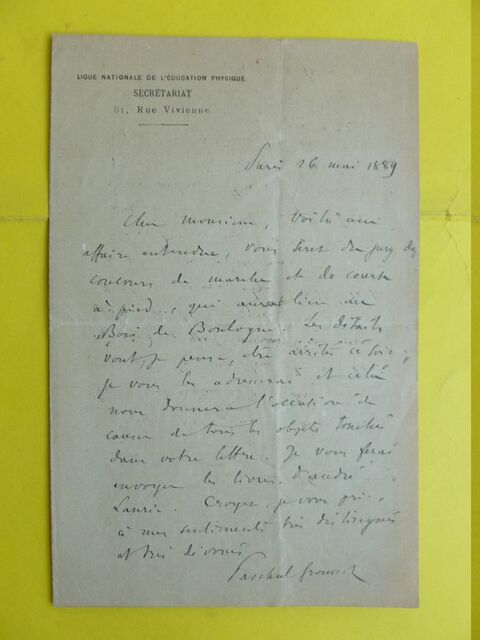 LIGUE NATIONALE DE L'ÉDUCATION PHYSIQUE
SECRÉTARIAT
51, Rue Vivienne
Paris 26 mai 1889
Cher Monsieur, Voilà une
affaire entendue, vous serez du jury des
concours de marche et de course
à pied, qui auront lieu au
Bois de Boulogne. Les détails
vont, je pense, être arrêtés ce soir ;
je vous les adresserai et cela
nous donnera l'occasion de
causer de tous les objets touchés
dans votre lettre. Je vous ferai
envoyer les livres d'André
Laurie. Croyez, je vous prie,
à mes sentiments très distingués
et très dévoués
Paschal Grousset